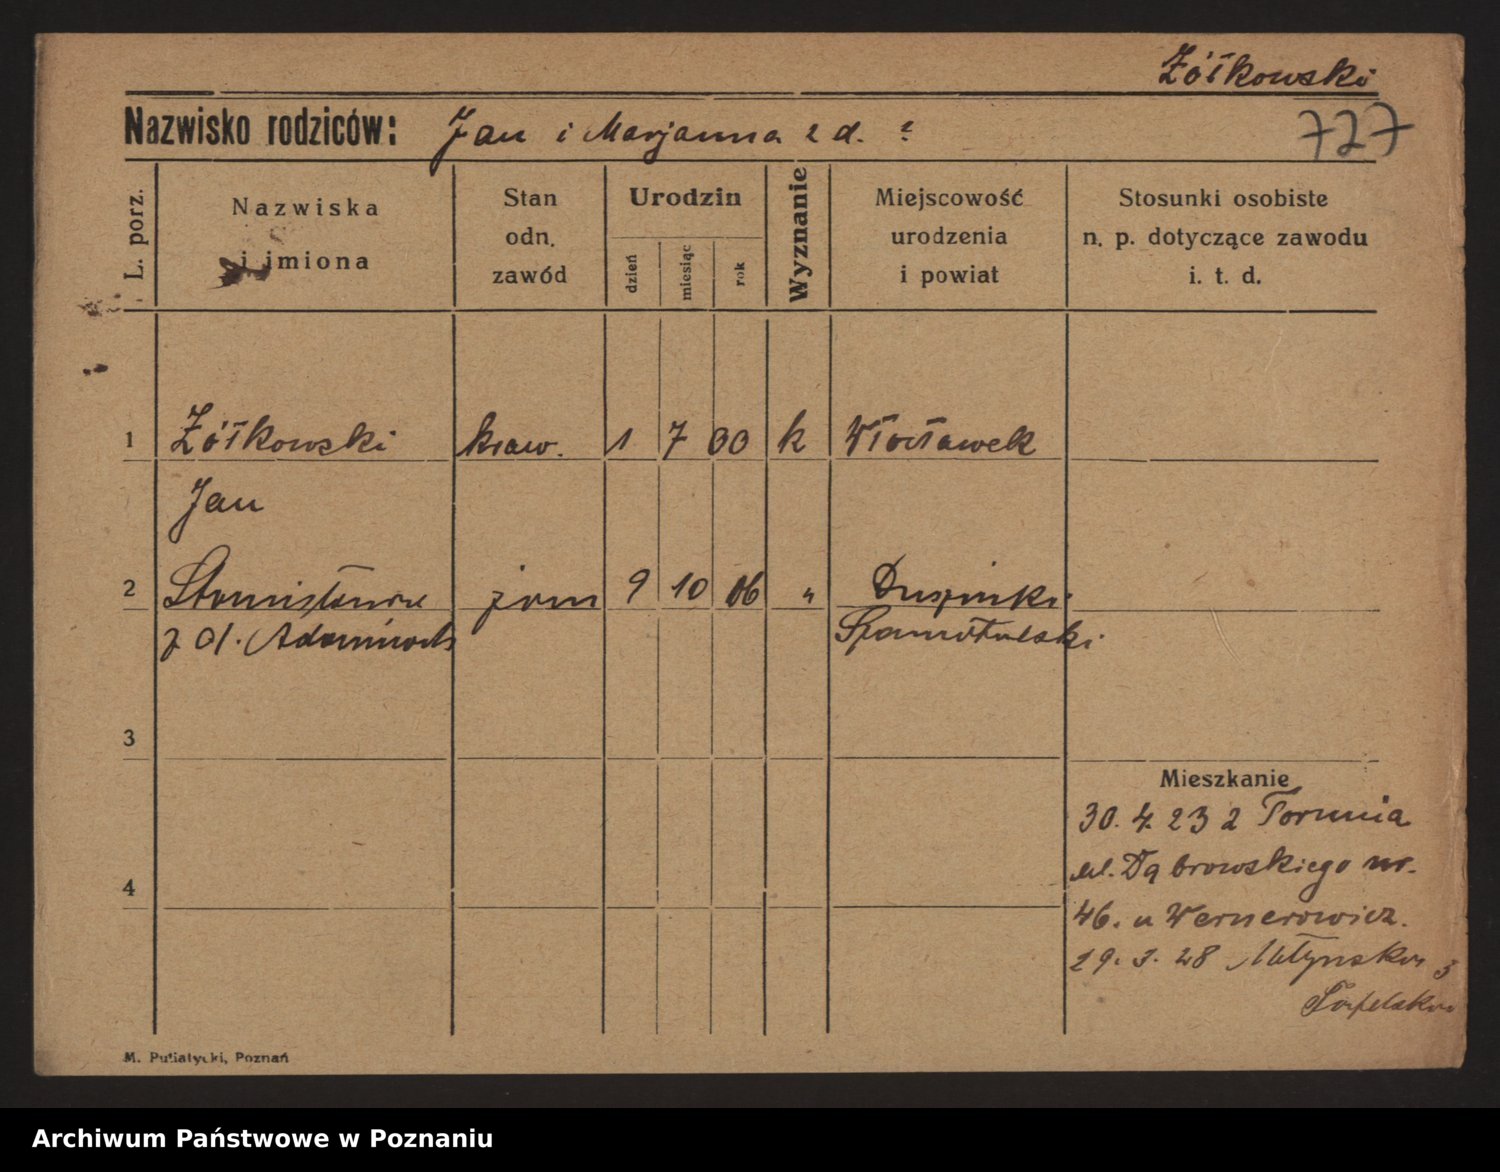 Żółkowski
Nazwisko rodziców: Jan i Marjanna z d. ?
727
L. porz.
Nazwiska
i imiona
Stan
odn.
zawód
Urodzin
dzień
miesiąc
rok
Wyznanie
Miejscowość
urodzenia
i powiat
Stosunki osobiste
n. p. dotyczące zawodu
i. t. d.
1 Żółkowski kraw. 1 7 00 k Włocławek
Jan
2 Stanisława żona 9 10 06 "
z d.
3
4
Mieszkanie
30. 4. 23 z Torunia
ul. Dąbrowskiego nr.
46. u Wernerowicz.
19. 3. 28 Młyńska 3
M. Putiatycki, Poznań
Archiwum Państwowe w Poznaniu